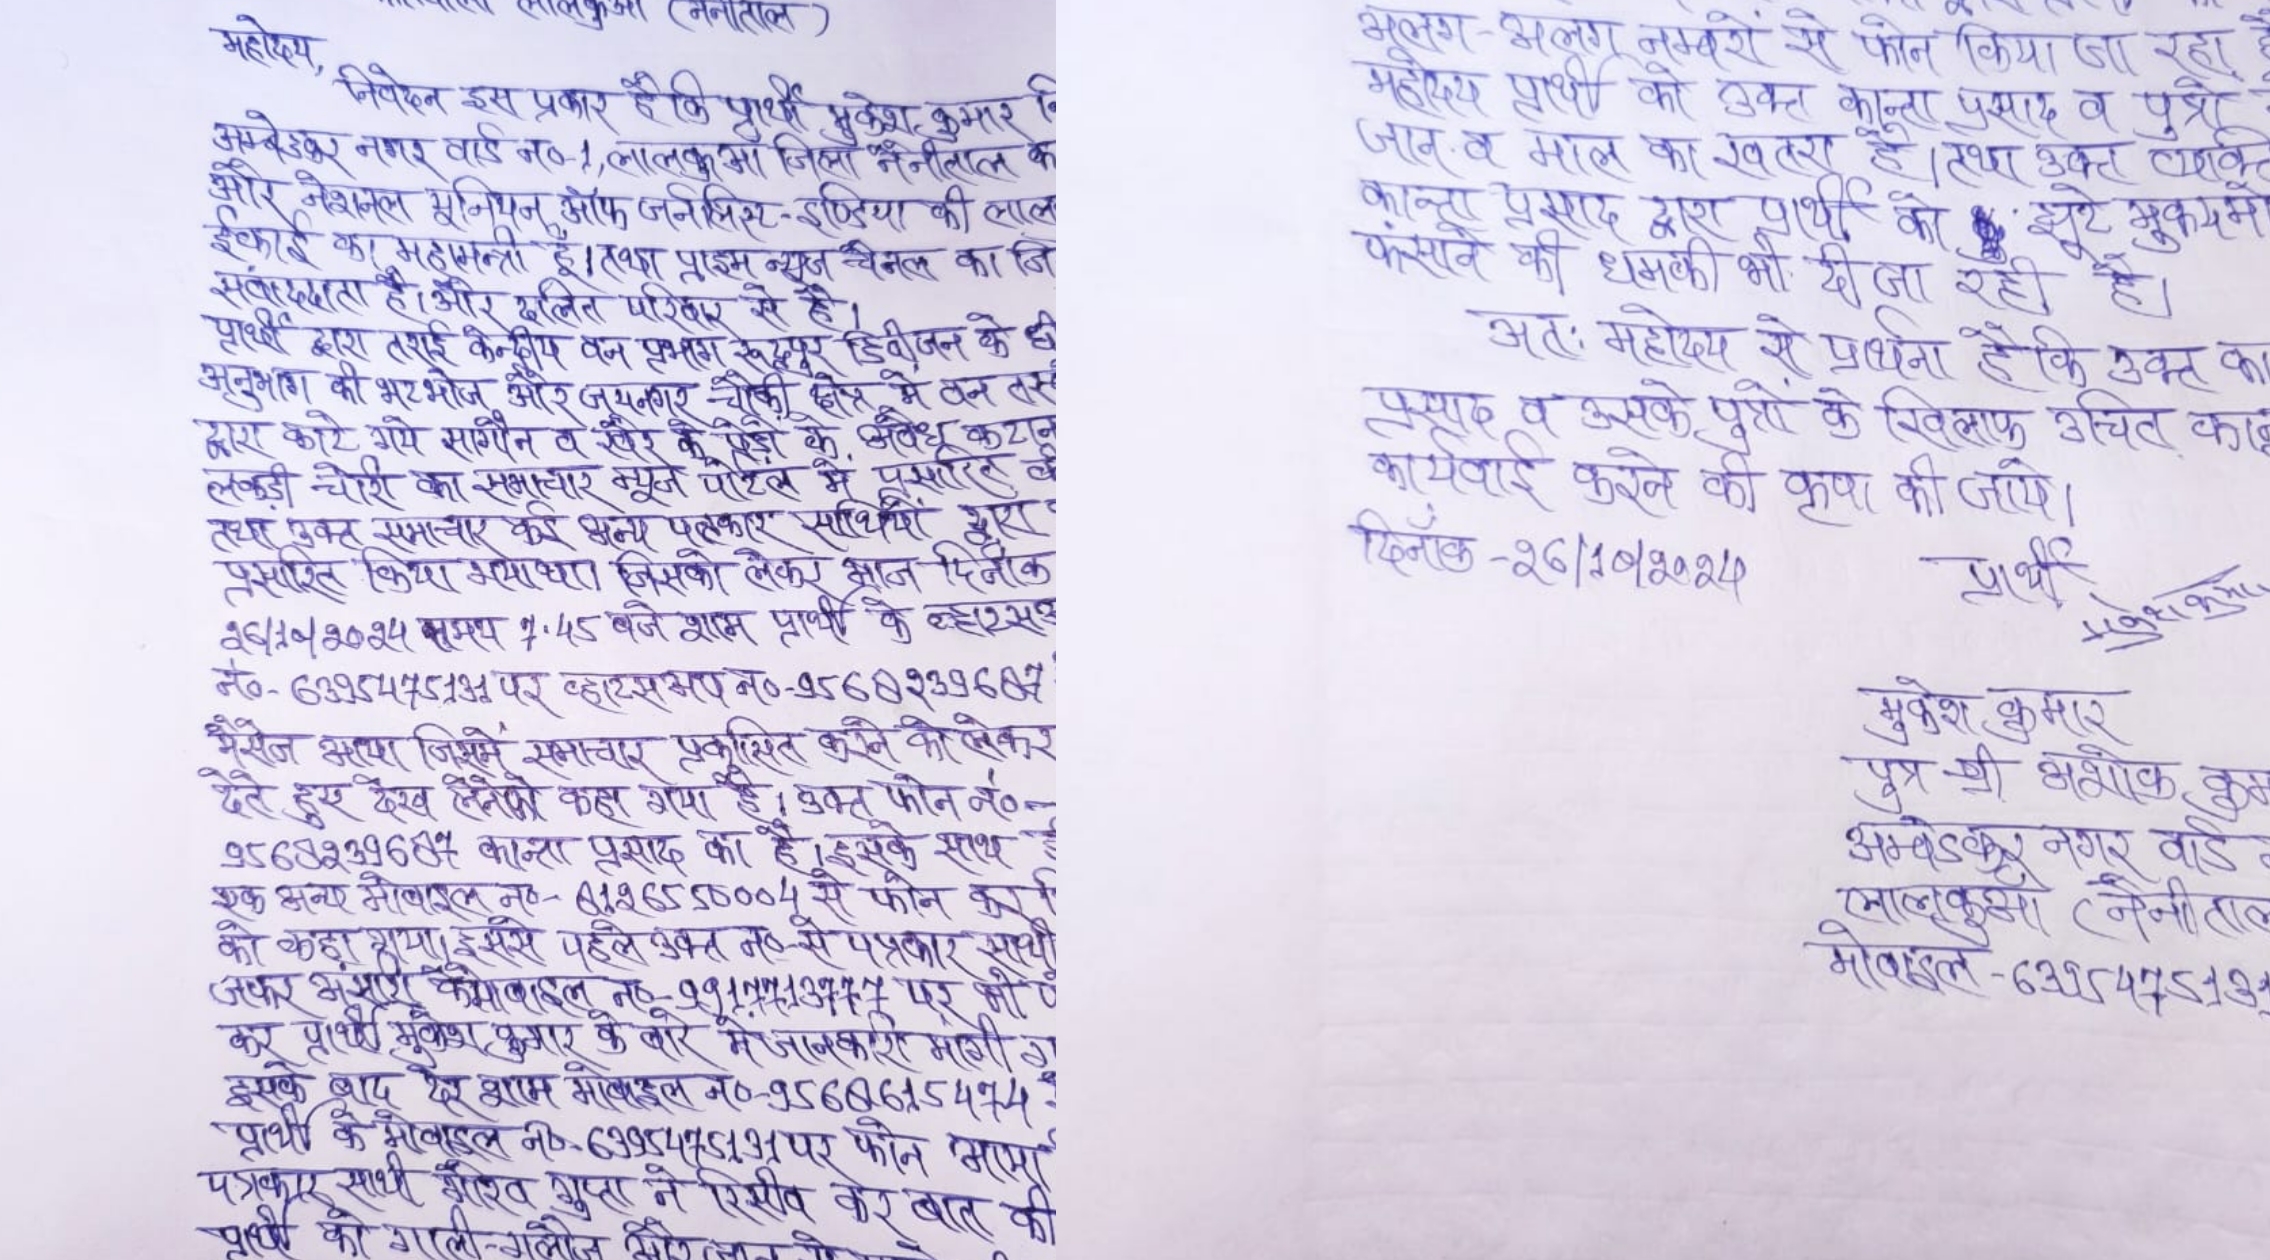 लालकुआँ (नैनीताल)
महोदय,
निवेदन इस प्रकार है कि प्रार्थी मुकेश कुमार नि
अम्बेडकर नगर वार्ड न०-1, लालकुआँ जिला नैनीताल क
और नेशनल यूनियन ऑफ जर्नलिस्ट-इण्डिया की लाल
ईकाई का महामन्त्री हूँ। तथा प्राइम न्यूज चैनल का जि
संवाददाता है। और दलित परिवार से है।
प्रार्थी द्वारा तराई केन्द्रीय वन प्रभाग रूद्रपुर डिवीजन के
अनुभाग की भटभोज और जयनगर चौकी क्षेत्र मे वन तस्
द्वारा काटे गये सागौन व खैर के पेड़ो के अवैध कटान
लकड़ी चोरी का समाचार न्यूज पोर्टल मे प्रसारित
तथा उक्त समाचार कई अन्य पत्रकार साथियों द्वारा
प्रसारित किया गया था। जिसको लेकर आज दिनाँक
26/10/2024 समय 7:45 बजे शाम प्रार्थी के व्हाटसअप
नं०- 6395475131 पर व्हाटसअप न०-9568239687
मैसेज आया जिसमें समाचार प्रकासित करने को लेकर
देते हुए देख लेने को कहा गया है। उक्त फोन नं०-
9568239687 कान्ता प्रसाद का है। इसके साथ ही
एक अन्य मोबाइल न०- 8126550004 से फोन कर
को कहा गया। इससे पहले उक्त न० से पत्रकार साथी
जफर अंसारी के मोबाइल न०-9917713777 पर भी फ
कर प्रार्थी मुकेश कुमार के बारे मे जानकारी मागी ग
इसके बाद देर शाम मोबाइल न०-9568615474 से
प्रार्थी के मोबाइल न०-6395475131 पर फोन आया
पत्रकार साथी गौरव गुप्ता ने रिसीव कर बात की
प्रार्थी को गाली-गलौज और जान से
अलग-अलग नम्बरों से फोन किया जा रहा है
महोदय प्रार्थी को उक्त कान्ता प्रसाद व पुत्रो
जान व माल का खतरा है। तथा उक्त व्यक्ति
कान्ता प्रसाद द्वारा प्रार्थी को झूटे मुकदमो
फंसाने की धमकी भी दी जा रही है।
अतः महोदय से प्रार्थना है कि उक्त का
प्रसाद व उसके पुत्रों के खिलाफ उचित कानू
कार्यवाई करने की कृपा की जाये।
दिनाँक -26/10/2024 प्रार्थी
मुकेश कुमार
मुकेश कुमार
पुत्र श्री अशोक कुमा
अम्बेडकर नगर वार्ड न
लालकुआँ (नैनीताल
मोबाइल -6395475131